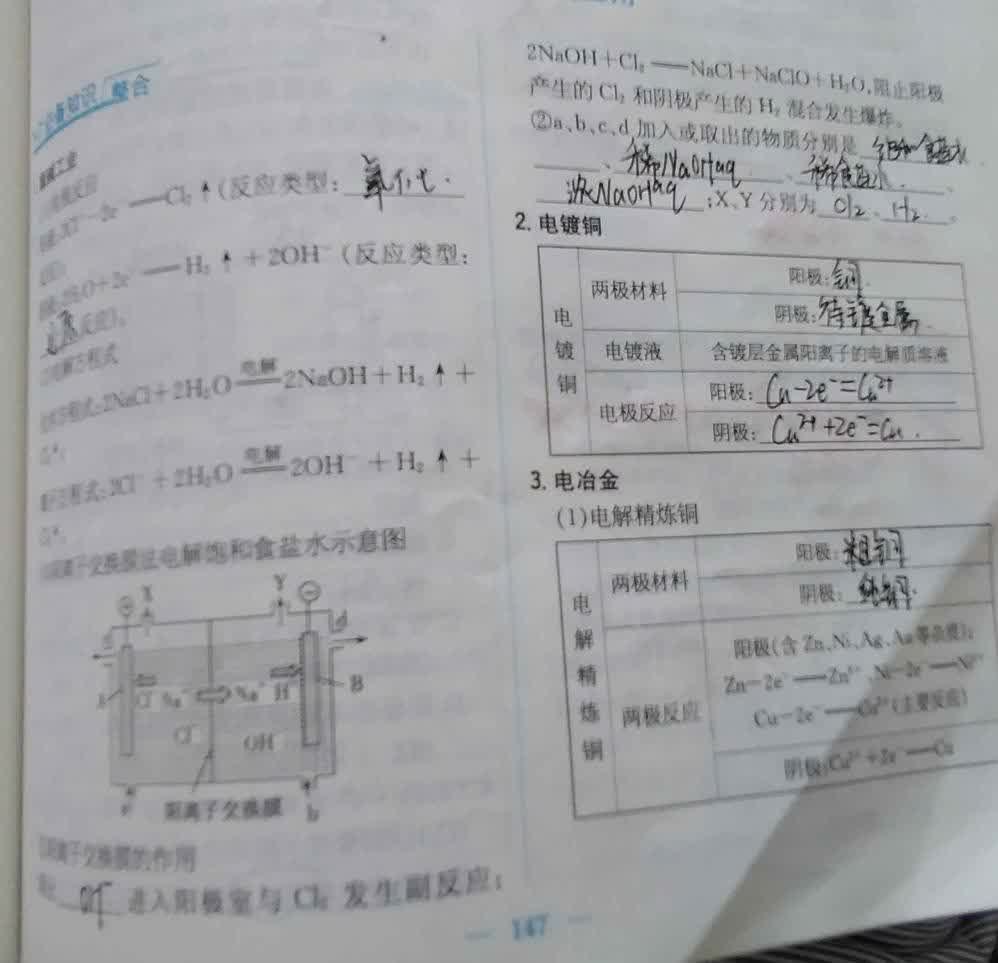 必备知识 整合
Cl⁻-2e⁻══Cl₂↑(反应类型:氧化
O+2e⁻══H₂↑+2OH⁻(反应类型:
反应)。
方程式
方程式:2NaCl+2H₂O 电解══ 2NaOH+H₂↑+
方程式:2Cl⁻+2H₂O 电解══ 2OH⁻+H₂↑+
离子交换膜法电解饱和食盐水示意图
X Y
⊖
d
Cl⁻ Na⁺ Na⁺ H⁺ B
Cl⁻ OH⁻
阳离子交换膜 b
离子交换膜的作用
OH⁻进入阳极室与Cl₂发生副反应:
2NaOH+Cl₂══NaCl+NaClO+H₂O,阻止阳极
产生的Cl₂和阴极产生的H₂混合发生爆炸。
②a、b、c、d加入或取出的物质分别是饱和食盐水
、稀NaOHaq、稀食盐水、
浓NaOHaq;X、Y分别为Cl₂、H₂。
2.电镀铜
电镀铜
两极材料 阳极:铜.
阴极:待镀金属.
电镀液 含镀层金属阳离子的电解质溶液
电极反应 阳极:Cu-2e⁻=Cu²⁺
阴极:Cu²⁺+2e⁻=Cu.
3.电冶金
(1)电解精炼铜
电解精炼铜
两极材料 阳极:粗铜
阴极:纯铜.
两极反应 阳极(含Zn、Ni、Ag、Au等杂质):
Zn-2e⁻══Zn²⁺、Ni-2e⁻══Ni²⁺
Cu-2e⁻══Cu²⁺(主要反应)
阴极:Cu²⁺+2e⁻══Cu
147